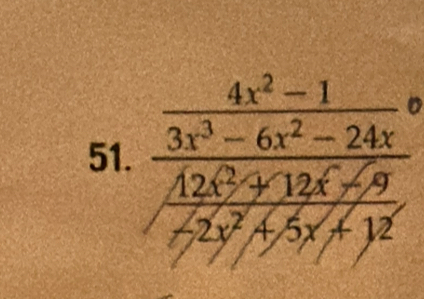 4x² − 1
3x³ − 6x² − 24x
51.
12x² + 12x − 9
−2x² + 5x + 12